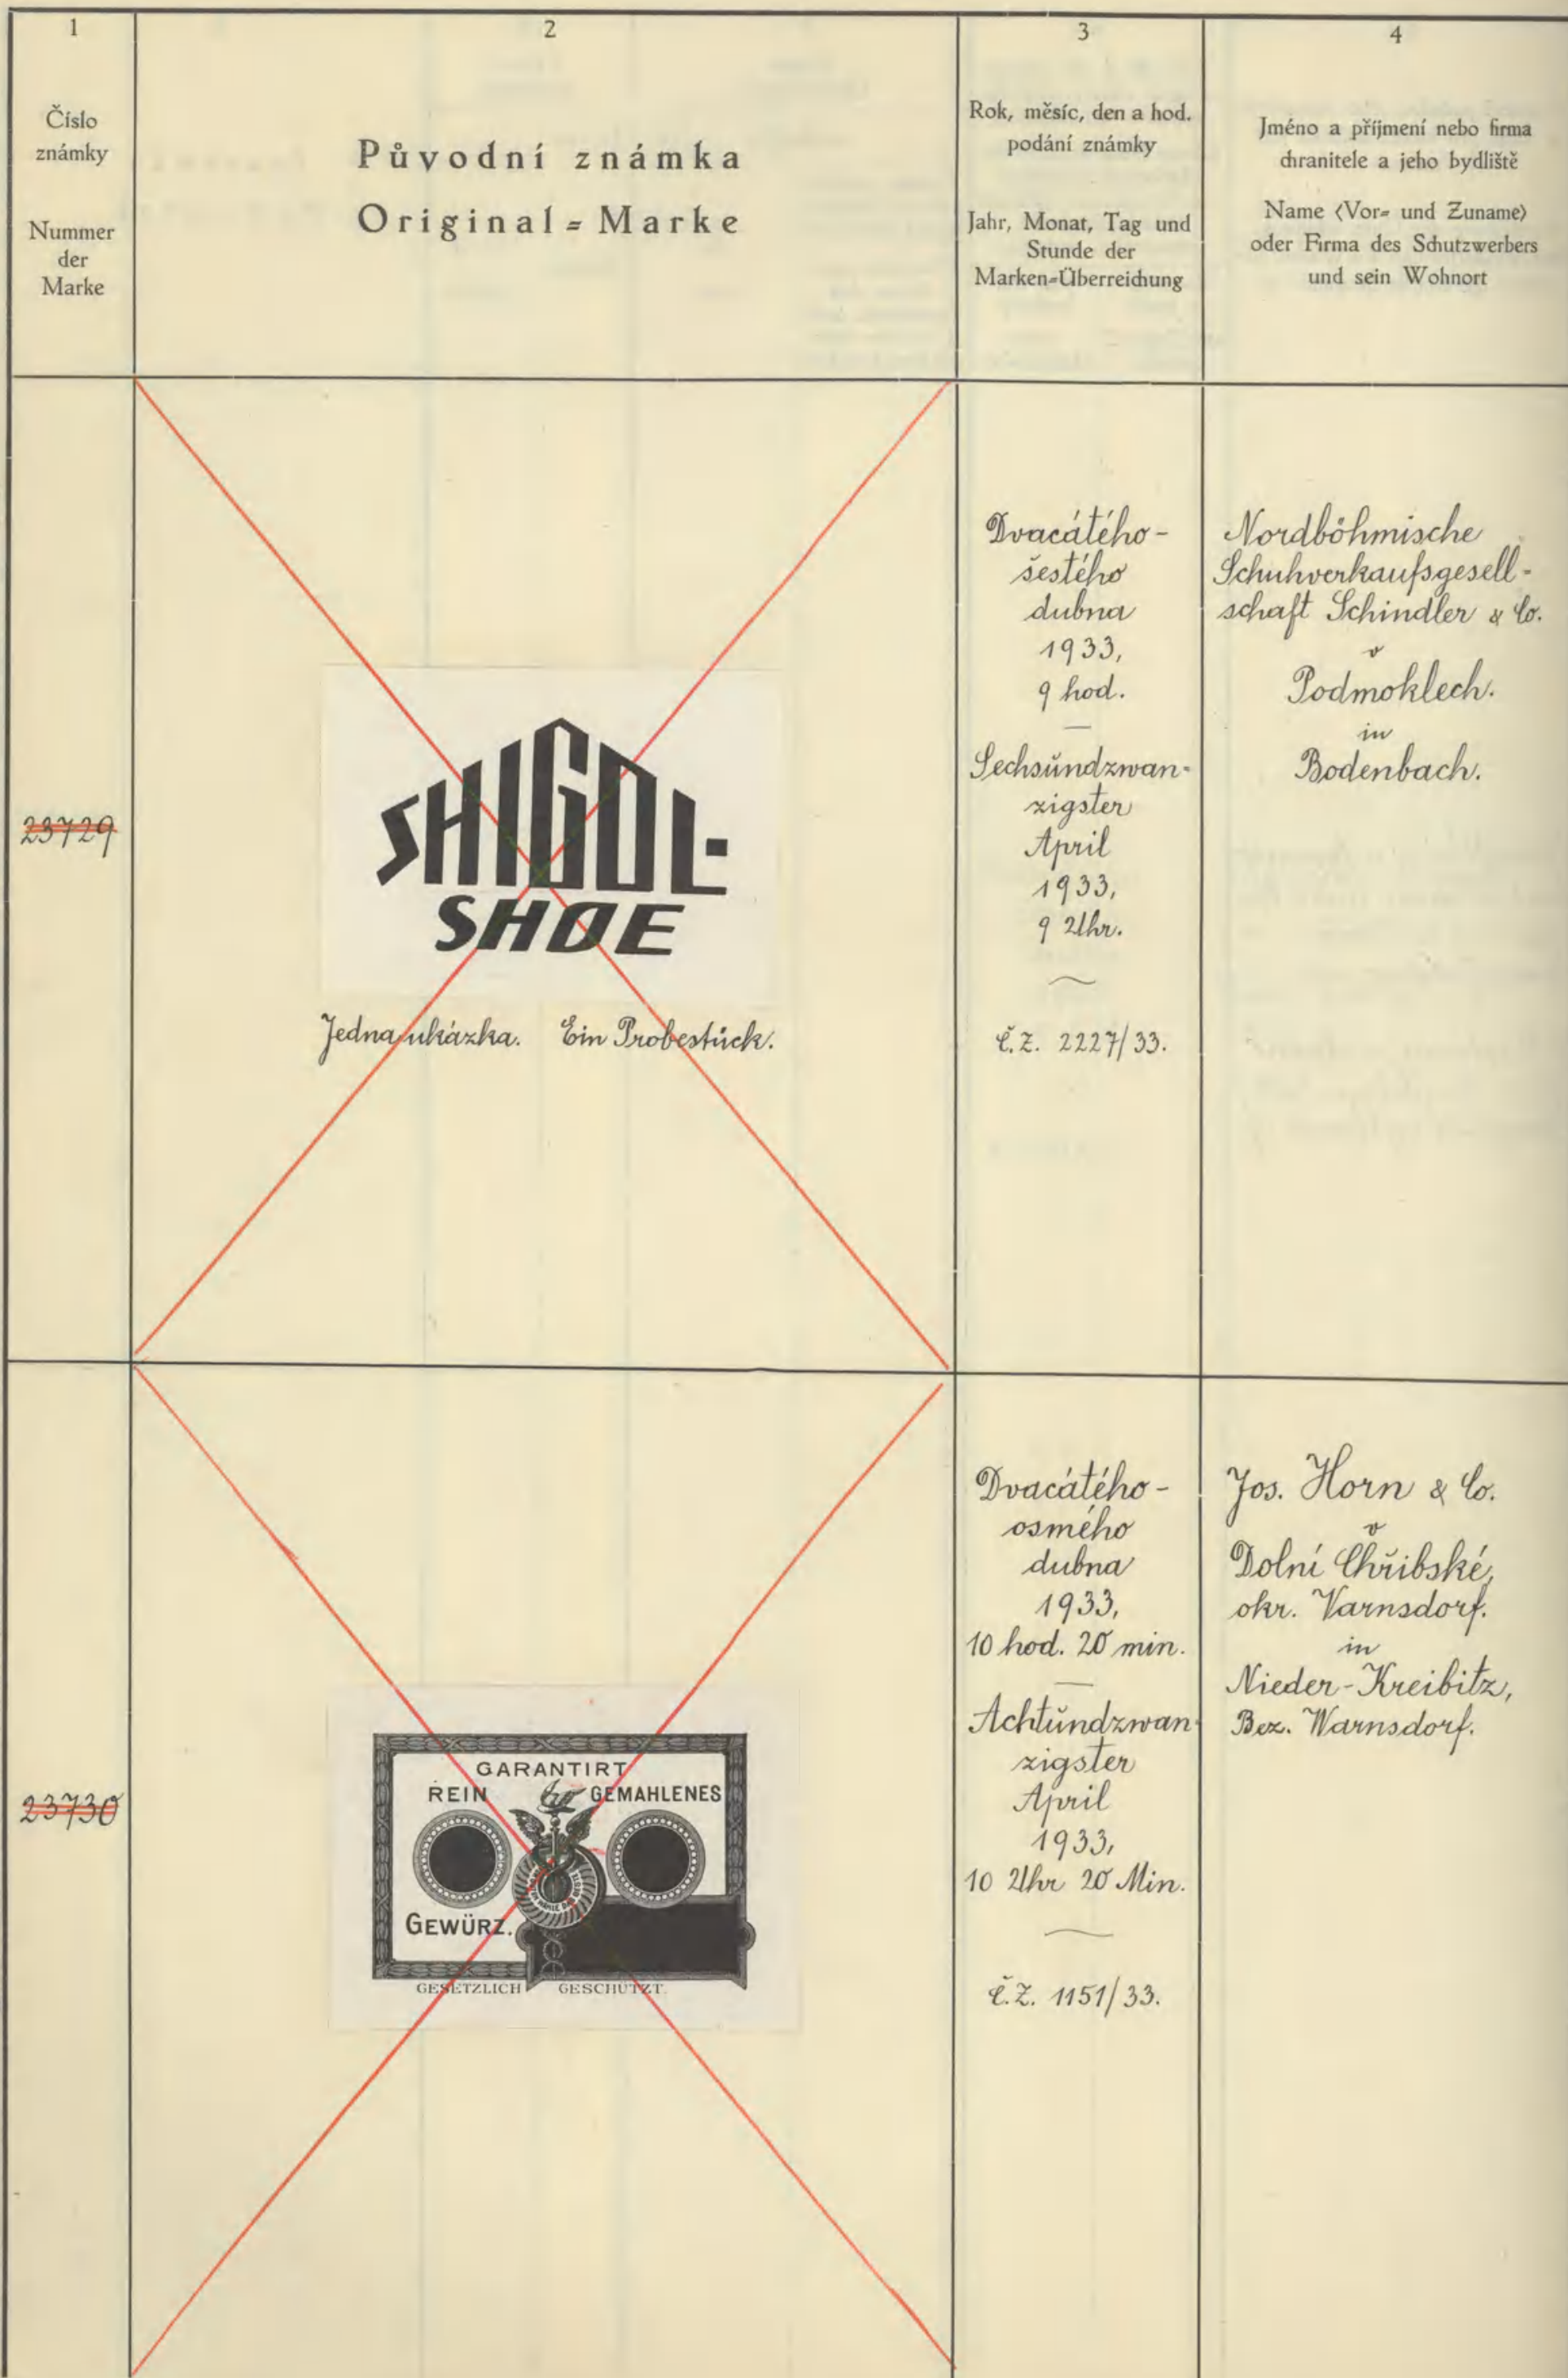 1
Číslo
známky
Nummer
der
Marke
2
Původní známka
Original=Marke
3
Rok, měsíc, den a hod.
podání známky
Jahr, Monat, Tag und
Stunde der
Marken=Überreichung
4
Jméno a příjmení nebo firma
chranitele a jeho bydliště
Name (Vor= und Zuname)
oder Firma des Schutzwerbers
und sein Wohnort
23729
SHIGOL-
SHOE
Jedna ukázka. Ein Probestück.
Dvacátého-
šestého
dubna
1933,
9 hod.
Sechsundzwan-
zigster
April
1933,
9 Uhr.
Č.Z. 2227/33.
Nordböhmische
Schuhverkaufsgesell-
schaft Schindler & Co.
v
Podmoklech.
in
Bodenbach.
23730
GARANTIRT
REIN GEMAHLENES
GEWÜRZ.
GESETZLICH GESCHÜTZT.
Dvacátého-
osmého
dubna
1933,
10 hod. 20 min.
Achtundzwan-
zigster
April
1933,
10 Uhr 20 Min.
Č.Z. 1151/33.
Jos. Horn & Co.
v
Dolní Chřibské,
okr. Varnsdorf.
in
Nieder-Kreibitz,
Bez. Warnsdorf.